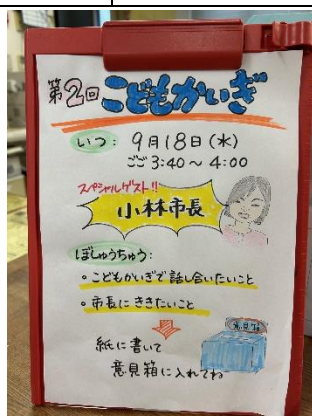 第2回 こどもかいぎ
いつ: 9月18日(水)
ごご 3:40～4:00
スペシャルゲスト!!
小林市長
ぼしゅうちゅう:
・こどもかいぎで話し合いたいこと
・市長にききたいこと
紙に書いて
意見箱に入れてね
意見箱